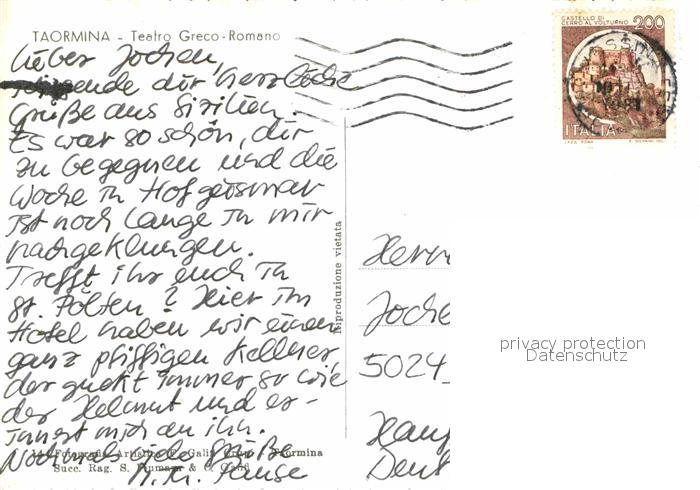 TAORMINA - Teatro Greco-Romano
Lieber Jochen,
sende dir herzliche
Grüße aus Sizilien.
Es war so schön, dir
zu begegnen und die
Woche in Hofgeismar
ist noch lange in mir
nachgeklungen.
Trefft ihr euch in
St. Pölten? Hier im
Hotel haben wir einen
ganz pfiffigen Kellner
der guckt immer so wie
der Helmut und er-
innert mich an ihn.
Nochmals Grüße
Fotografia Artistica Galifi Taormina
Succ. Rag. S. & C. Galifi
riproduzione vietata
CASTELLO DI
CERRO AL VOLTURNO 200
ITALIA
I.P.Z.S. ROMA
Herrn
Joche
5024
Deut
privacy protection
Datenschutz